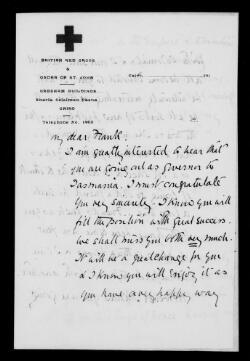 BRITISH RED CROSS
&
ORDER OF ST JOHN
GRESHAM BUILDINGS
CAIRO
Cairo, 191
Telephone No.
My dear Frank:
I am greatly interested to hear that
you are coming out as governor to
Tasmania. I must congratulate
you very sincerely. I know you will
fill the position with great success.
We shall miss you both very much.
It will be a great change for you
& I know you will enjoy it as
you have a very happy way